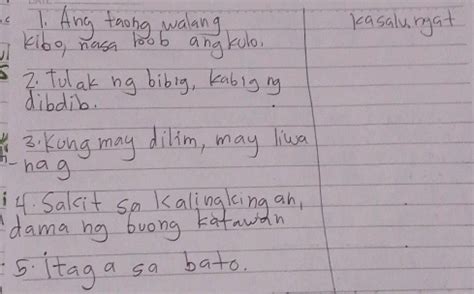 1. Ang taong walang
kibo, nasa loob ang kulo.
kasalungat
2. Tulak ng bibig, kabig ng
dibdib.
3. Kung may dilim, may liwa
- nag
4. Sakit sa kalingkingan,
dama ng buong katawan
5. itaga sa bato.